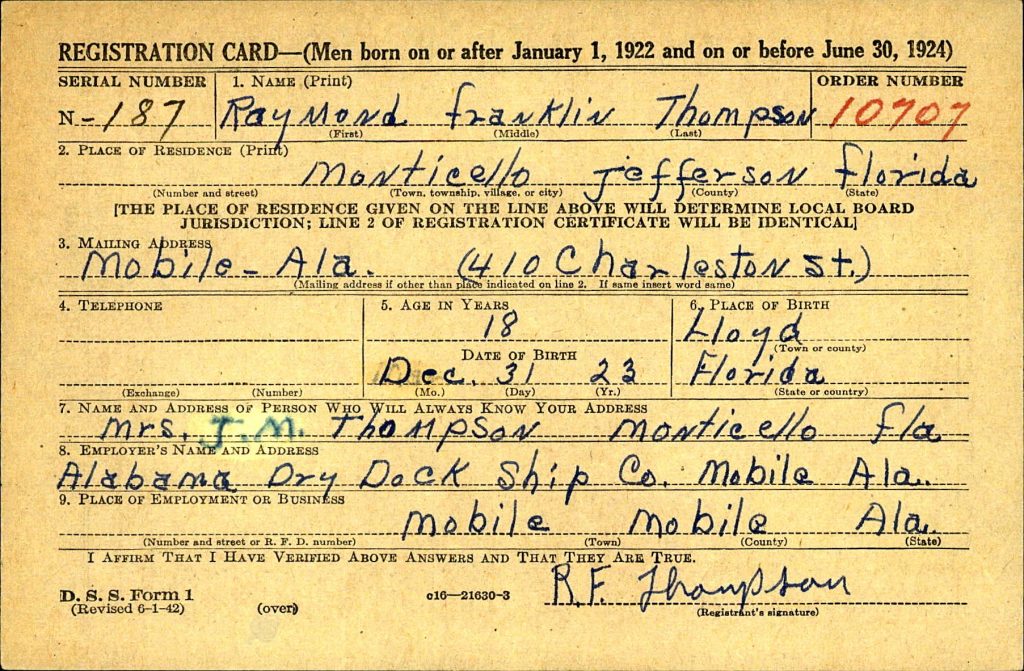 REGISTRATION CARD—(Men born on or after January 1, 1922 and on or before June 30, 1924)
SERIAL NUMBER 1. NAME (Print) ORDER NUMBER
N- 187 Raymond Franklin Thompson 10707
(First) (Middle) (Last)
2. PLACE OF RESIDENCE (Print)
Monticello Jefferson Florida
(Number and street) (Town, township, village, or city) (County) (State)
[THE PLACE OF RESIDENCE GIVEN ON THE LINE ABOVE WILL DETERMINE LOCAL BOARD
JURISDICTION; LINE 2 OF REGISTRATION CERTIFICATE WILL BE IDENTICAL]
3. MAILING ADDRESS
Mobile - Ala. (410 Charleston St.)
(Mailing address if other than place indicated on line 2. If same insert word same)
4. TELEPHONE 5. AGE IN YEARS 6. PLACE OF BIRTH
18 Lloyd
(Town or county)
DATE OF BIRTH
Dec. 31 23 Florida
(Exchange) (Number) (Mo.) (Day) (Yr.) (State or country)
7. NAME AND ADDRESS OF PERSON WHO WILL ALWAYS KNOW YOUR ADDRESS
Mrs. J.M. Thompson Monticello Fla
8. EMPLOYER'S NAME AND ADDRESS
Alabama Dry Dock Ship Co. Mobile Ala.
9. PLACE OF EMPLOYMENT OR BUSINESS
Mobile Mobile Ala.
(Number and street or R. F. D. number) (Town) (County) (State)
I AFFIRM THAT I HAVE VERIFIED ABOVE ANSWERS AND THAT THEY ARE TRUE.
R.F. Thompson
D. S. S. Form 1 c16—21630-3
(Revised 6-1-42) (over) (Registrant's signature)